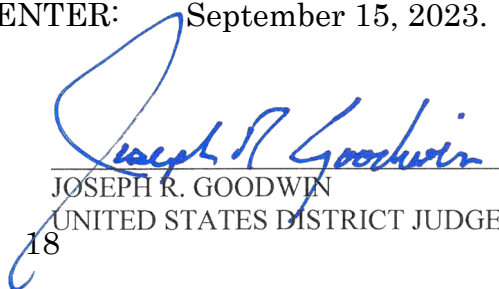 ENTER: September 15, 2023.
Joseph R Goodwin
JOSEPH R. GOODWIN
UNITED STATES DISTRICT JUDGE
18